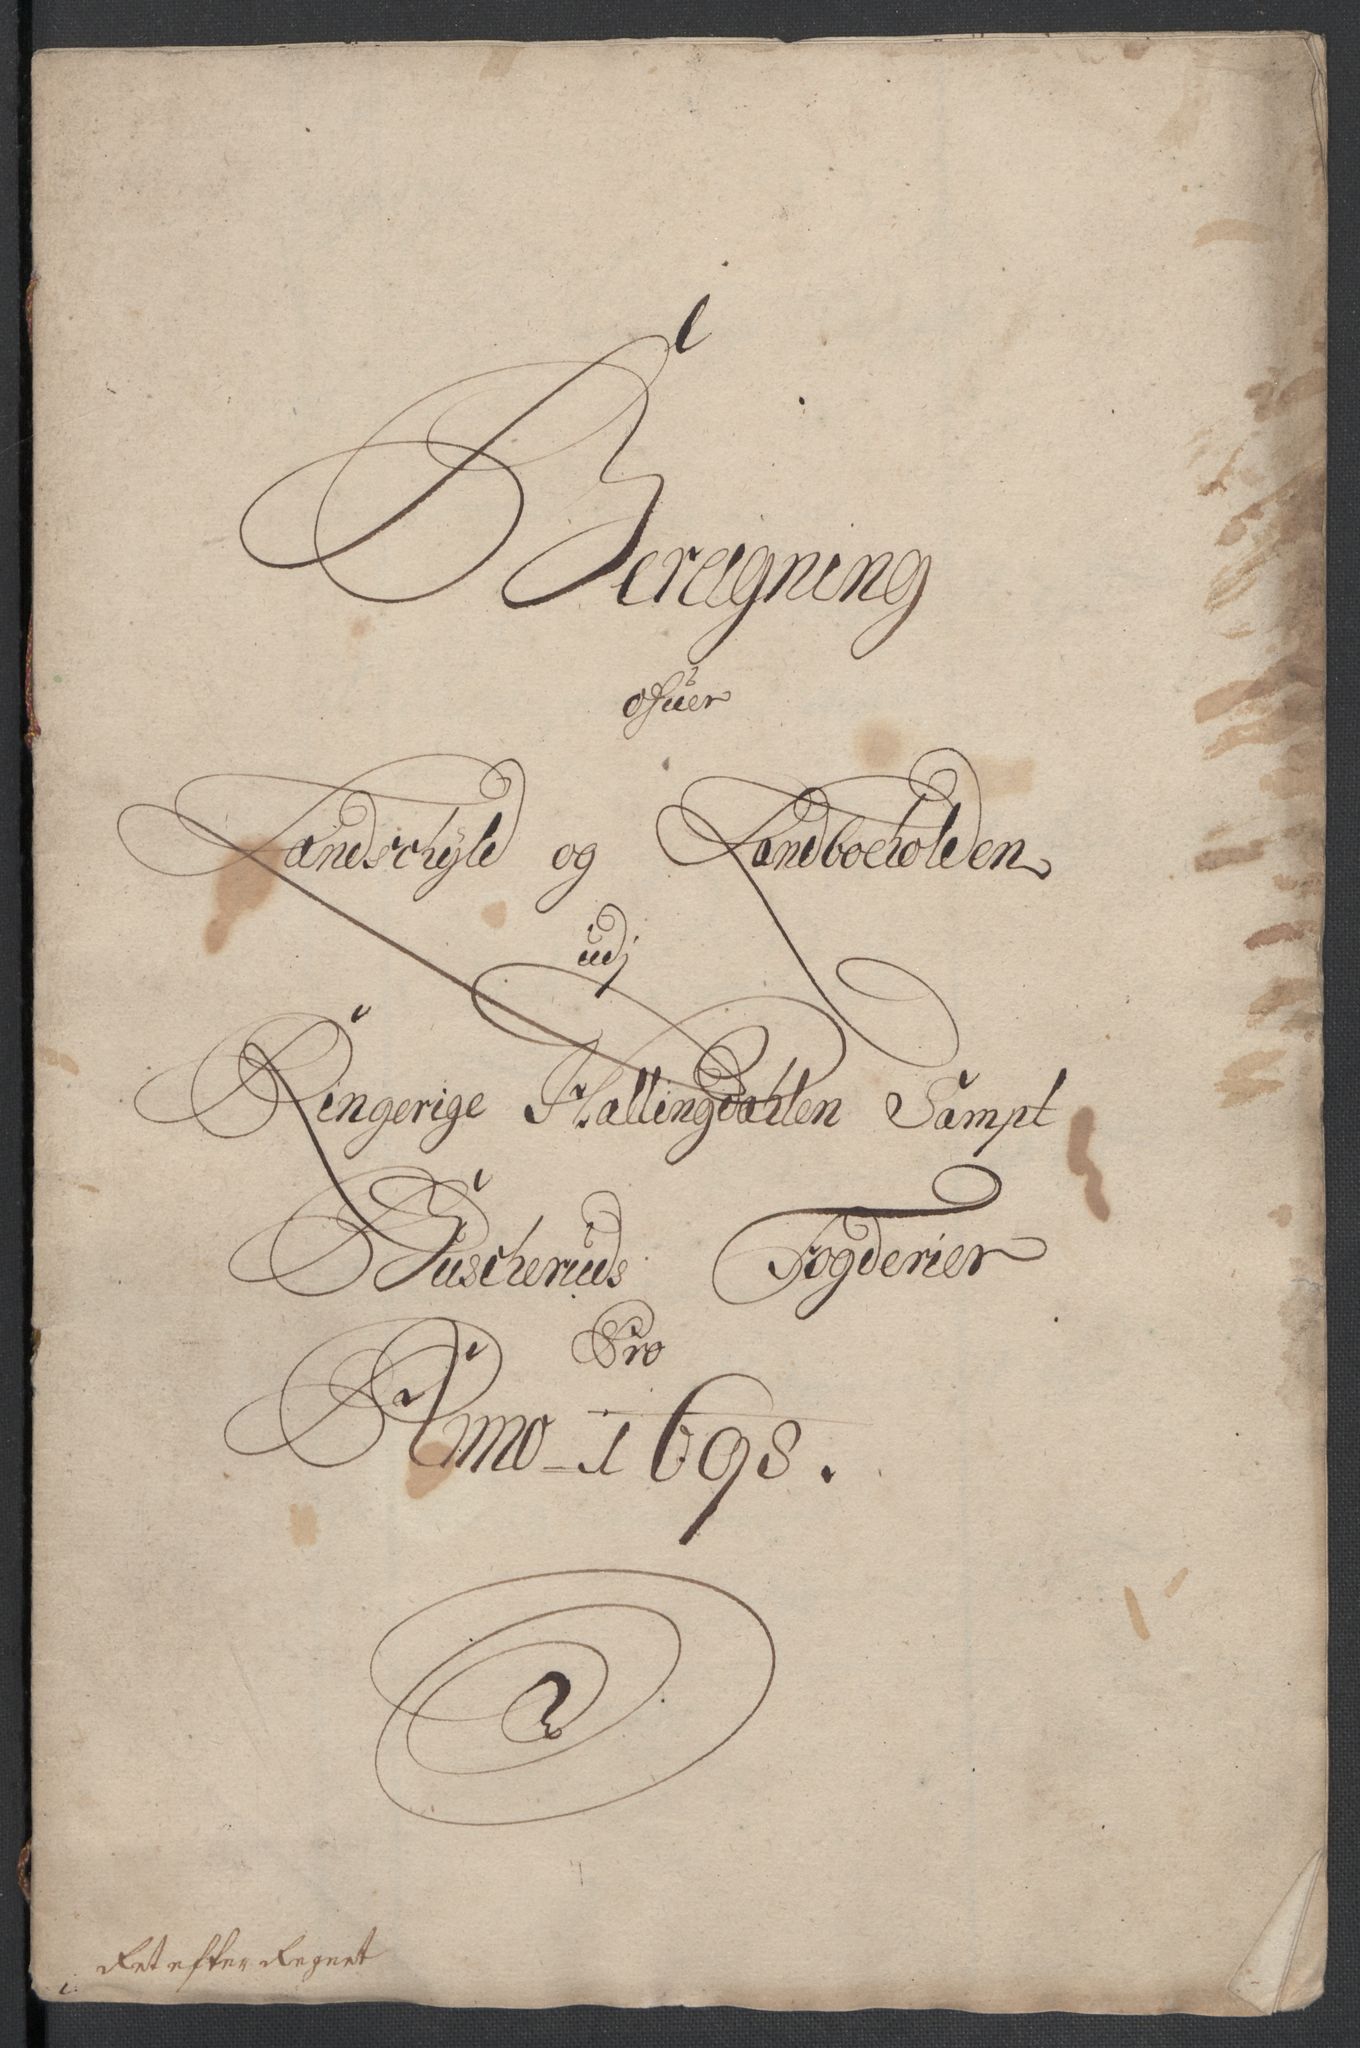 Bereigning
ofuer
Landschyld og Landboeholden
udj
Ringerige Hallingdahlen Sampt
Buscheruds Fogderier
Pro
Anno 1698.
Ret efter Regnet